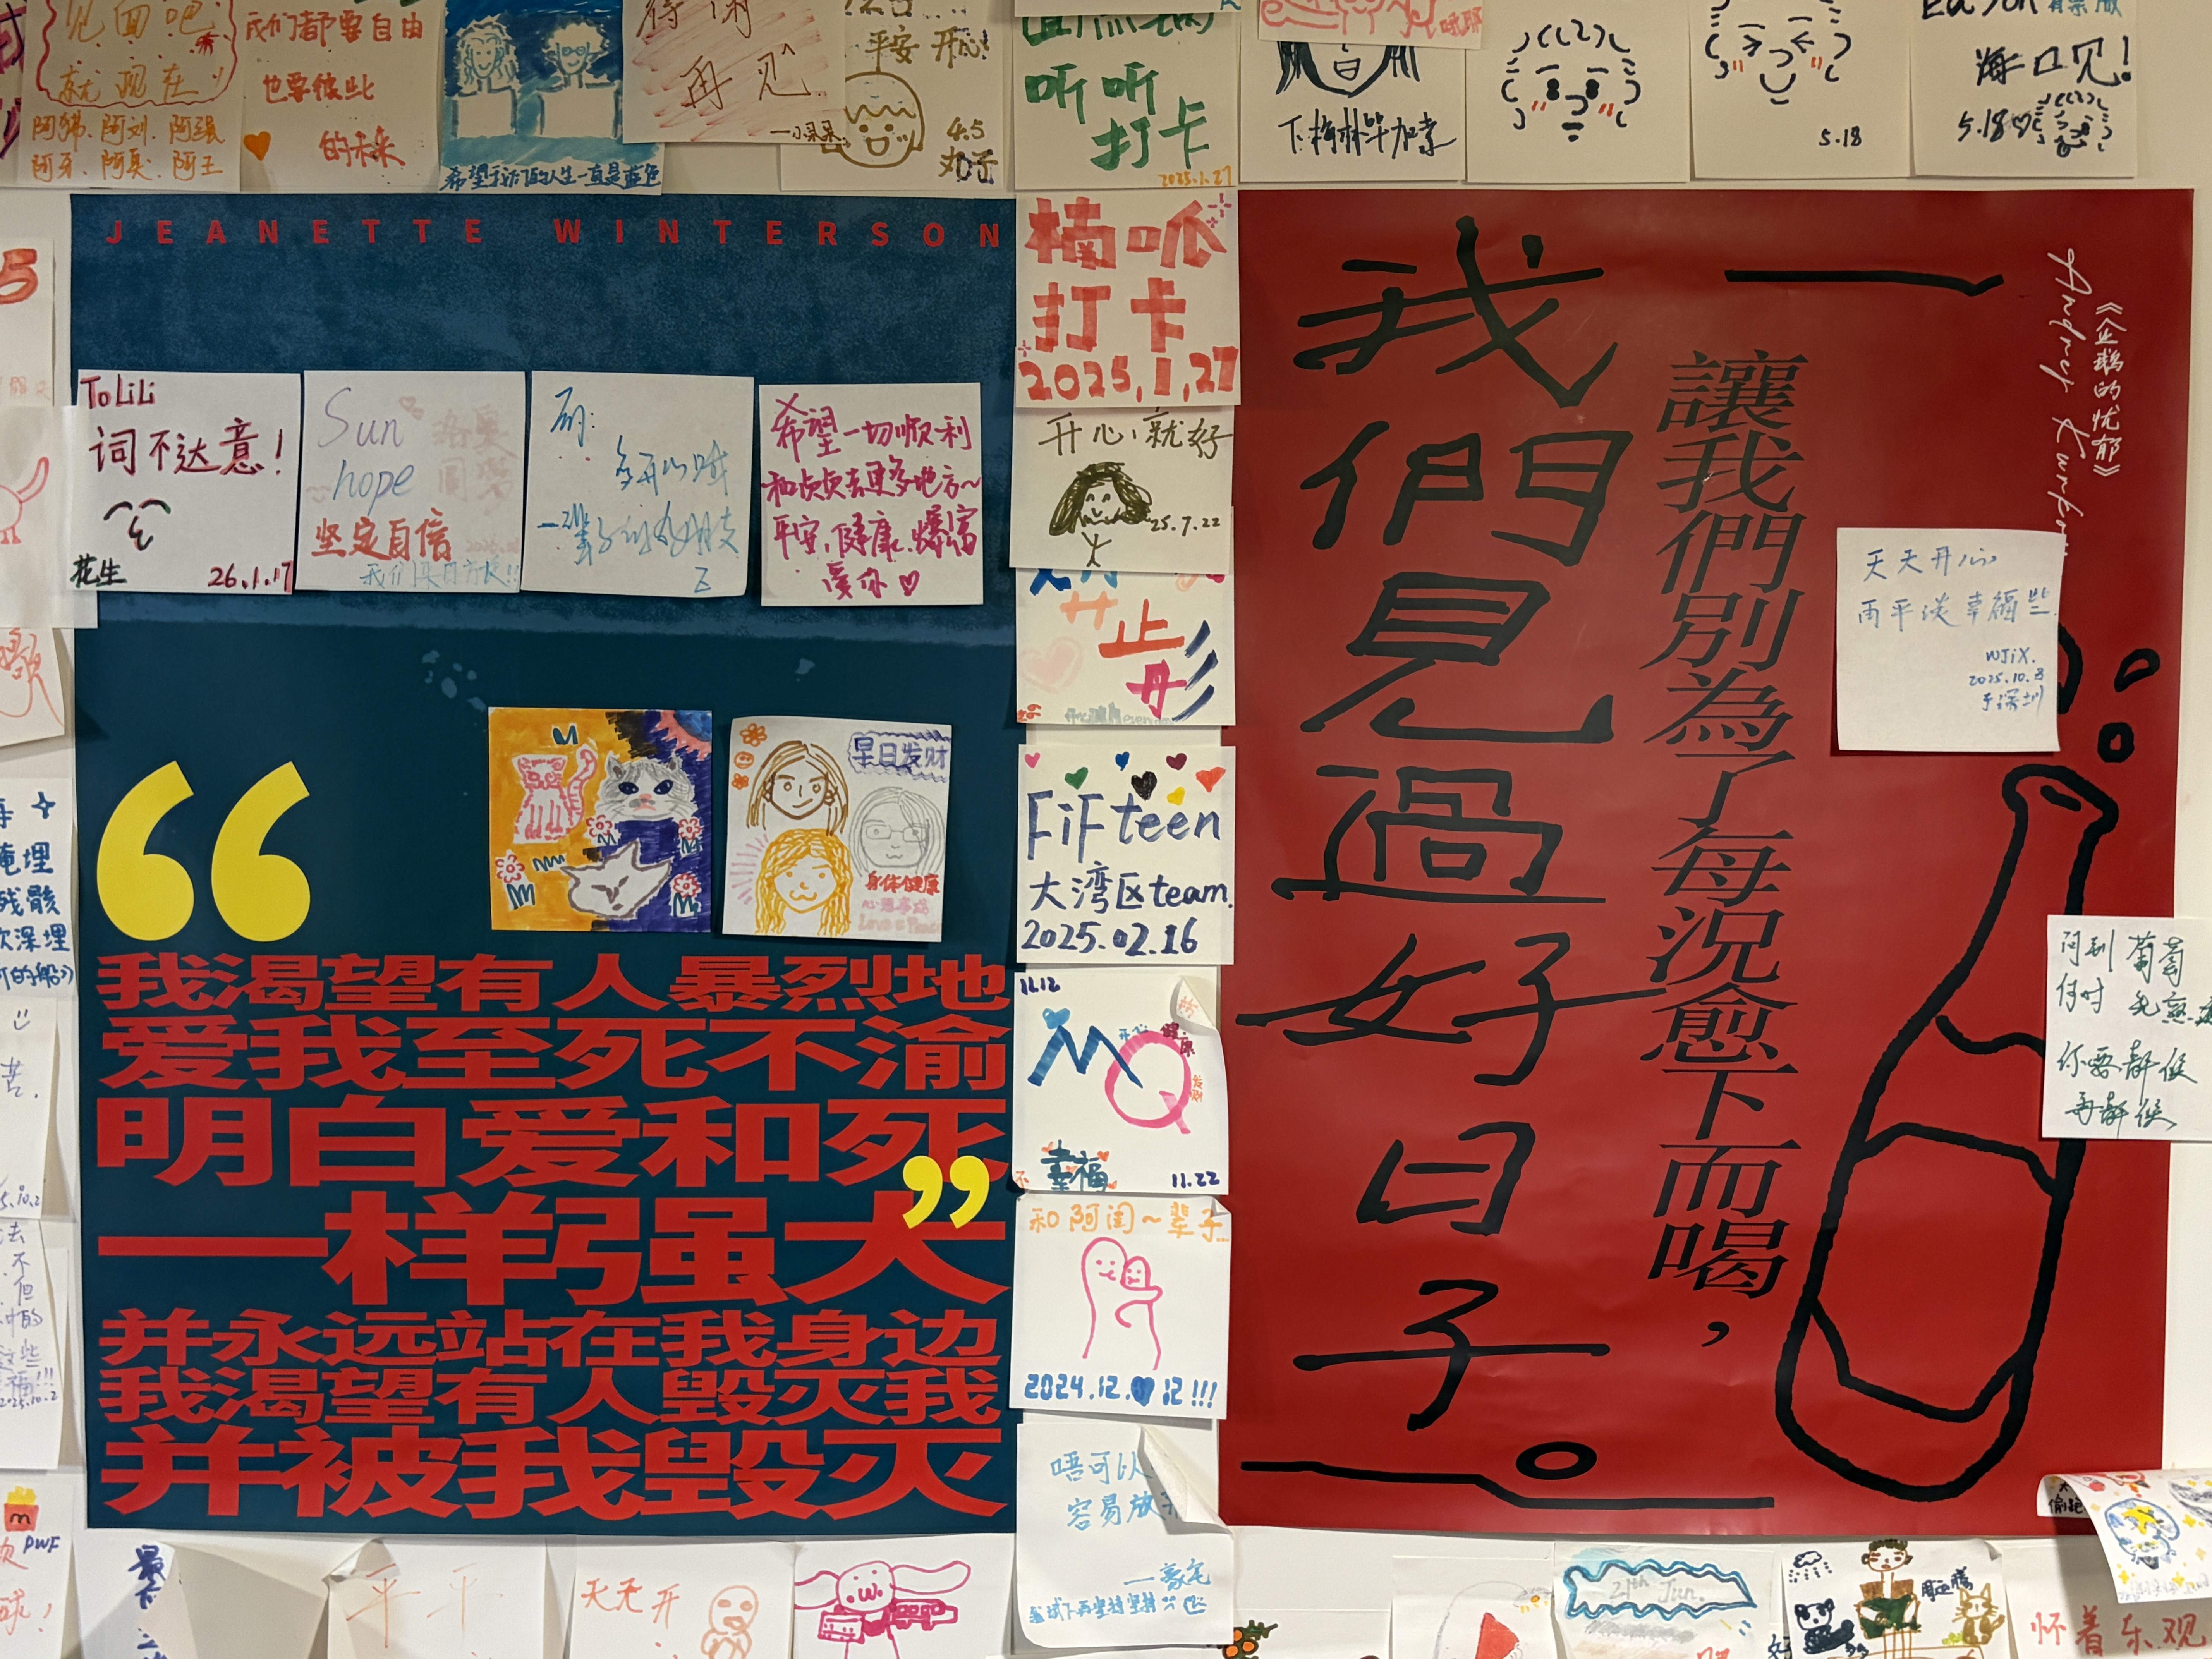 见面吧
就现在
阿刘
我们都要自由
也要彼此
的未来
希望我们的人生一直是蓝色
再见
平安 开心!
4.5
听听
打卡
2025.1.27
5.18
海口见!
5.18
JEANETTE WINTERSON
To LiLi
词不达意!
花生
26.1.17
Sun
hope
坚定自信
希望一切顺利
和贞贞去更多地方~
平安,健康,爆富
爱你
早日发财
身体健康
“
我渴望有人暴烈地
爱我至死不渝
明白爱和死
一样强大
”
并永远站在我身边
我渴望有人毁灭我
并被我毁灭
楠呱
打卡
2025.1.27
开心就好
25.7.22
FiFteen
大湾区team.
2025.02.16
11.12
MQ
幸福
11.22
和阿闰~辈子...
2024.12.12!!!
唔可以
容易放
《企鹅的忧郁》
讓我們別為了每況愈下而喝,
我們見過好日子。
天天开心
WJiX.
2025.10.3
于深圳
何时
你要静候
再静候
掩埋
残骸
深埋
PWF
平平
天天开
21th Jun.
怀着乐观